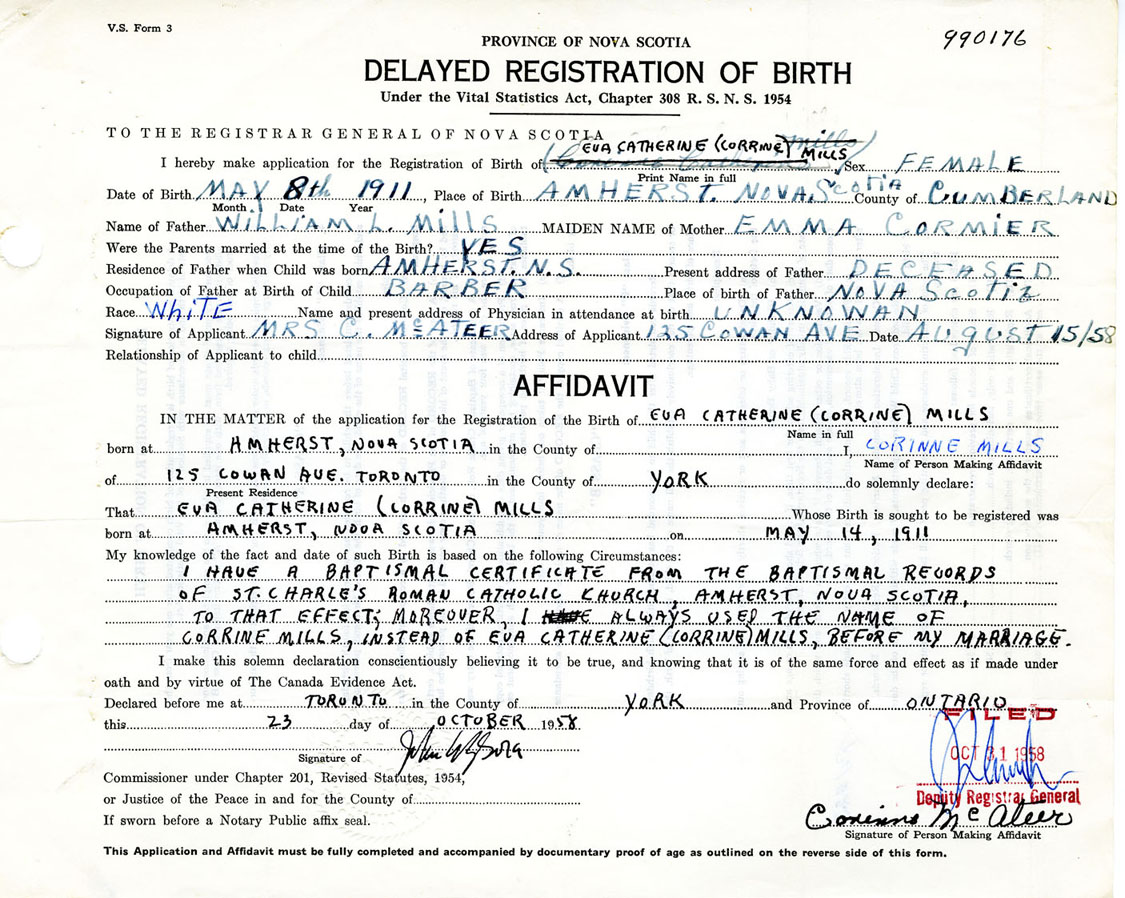 V.S. Form 3
990176
PROVINCE OF NOVA SCOTIA
DELAYED REGISTRATION OF BIRTH
Under the Vital Statistics Act, Chapter 308 R. S. N. S. 1954
TO THE REGISTRAR GENERAL OF NOVA SCOTIA
I hereby make application for the Registration of Birth of EVA CATHERINE (CORRINE) MILLS Sex FEMALE
Print Name in full
Date of Birth MAY 8th 1911, Place of Birth AMHERST. NOVA Scotia County of CUMBERLAND
Month Date Year
Name of Father WILLIAM L. MILLS MAIDEN NAME of Mother EMMA CORMIER
Were the Parents married at the time of the Birth? YES
Residence of Father when Child was born AMHERST. N.S. Present address of Father DECEASED
Occupation of Father at Birth of Child BARBER Place of birth of Father NOVA Scotia
Race WHITE Name and present address of Physician in attendance at birth UNKNOWAN
Signature of Applicant MRS C. McATEER Address of Applicant 125 COWAN AVE Date AUGUST 15/58
Relationship of Applicant to child
AFFIDAVIT
IN THE MATTER of the application for the Registration of the Birth of EVA CATHERINE (CORRINE) MILLS
Name in full
born at AMHERST, NOVA SCOTIA in the County of I, CORINNE MILLS
Name of Person Making Affidavit
of 125 COWAN AVE. TORONTO in the County of YORK do solemnly declare:
Present Residence
That EVA CATHERINE (CORRINE) MILLS Whose Birth is sought to be registered was
born at AMHERST, NOVA SCOTIA on MAY 14, 1911
My knowledge of the fact and date of such Birth is based on the following Circumstances:
I HAVE A BAPTISMAL CERTIFICATE FROM THE BAPTISMAL RECORDS
OF ST. CHARLE'S ROMAN CATHOLIC KHURCH, AMHERST, NOVA SCOTIA,
TO THAT EFFECT; MOREOVER, I ALWAYS USED THE NAME OF
CORRINE MILLS, INSTEAD OF EVA CATHERINE (CORRINE) MILLS, BEFORE MY MARRIAGE.
I make this solemn declaration conscientiously believing it to be true, and knowing that it is of the same force and effect as if made under
oath and by virtue of The Canada Evidence Act.
Declared before me at TORONTO in the County of YORK and Province of ONTARIO
this 23 day of OCTOBER 1958
FILED
OCT 31 1958
Deputy Registrar General
Signature of
Commissioner under Chapter 201, Revised Statutes, 1954,
or Justice of the Peace in and for the County of
If sworn before a Notary Public affix seal.
Corinne McAteer
Signature of Person Making Affidavit
This Application and Affidavit must be fully completed and accompanied by documentary proof of age as outlined on the reverse side of this form.